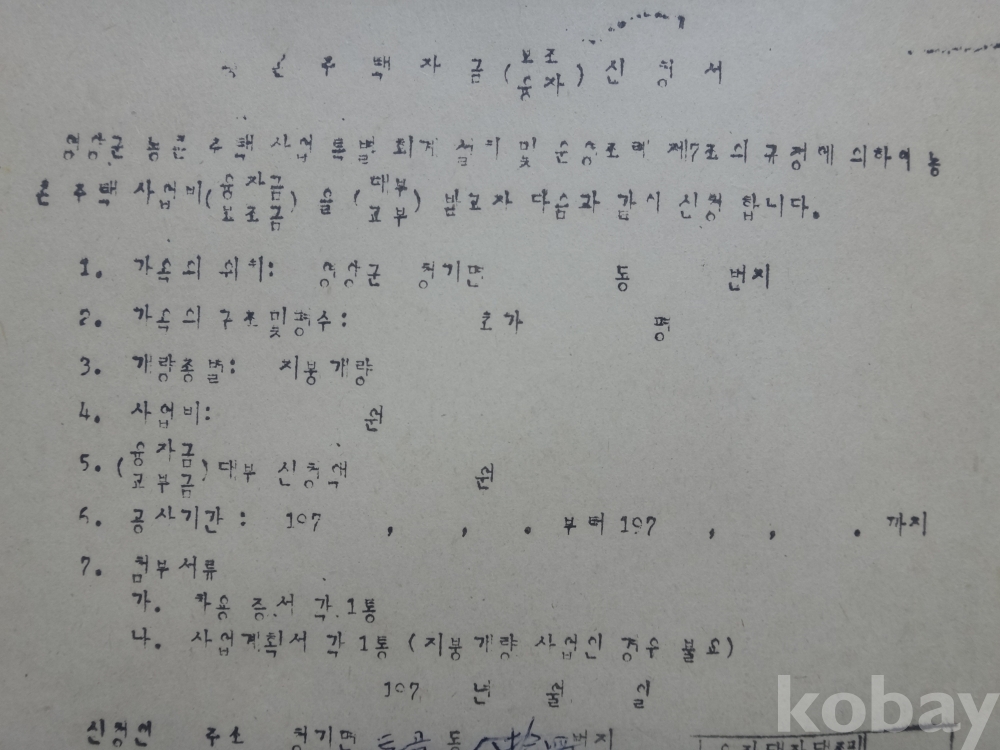 농촌주택자금(보조 융자)신청서
영양군 농촌 주택사업 특별회계 설치 및 운영조례 제7조의 규정에 의하여 농
촌 주택 사업비(융자금 보조금)을 (대부 교부) 받고자 다음과 같이 신청 합니다.
1. 가옥의 위치: 영양군 청기면 동 번지
2. 가옥의 구조및평수: 초가 평
3. 개량종별: 지붕개량
4. 사업비: 원
5. (융자금 교부금)대부 신청액 원
6. 공사기간: 197 , , . 부터 197 , , . 까지
7. 첨부서류
가. 차용 증서 각 1통
나. 사업계획서 각 1통 (지붕개량 사업인 경우 불요)
197 년 월 일
신청인 주소 청기면 동 번지
kobay